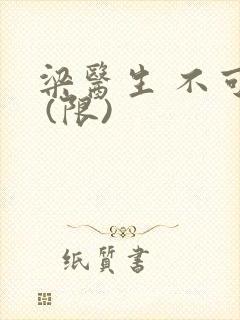 梁醫生 不可
(限)
纸質書